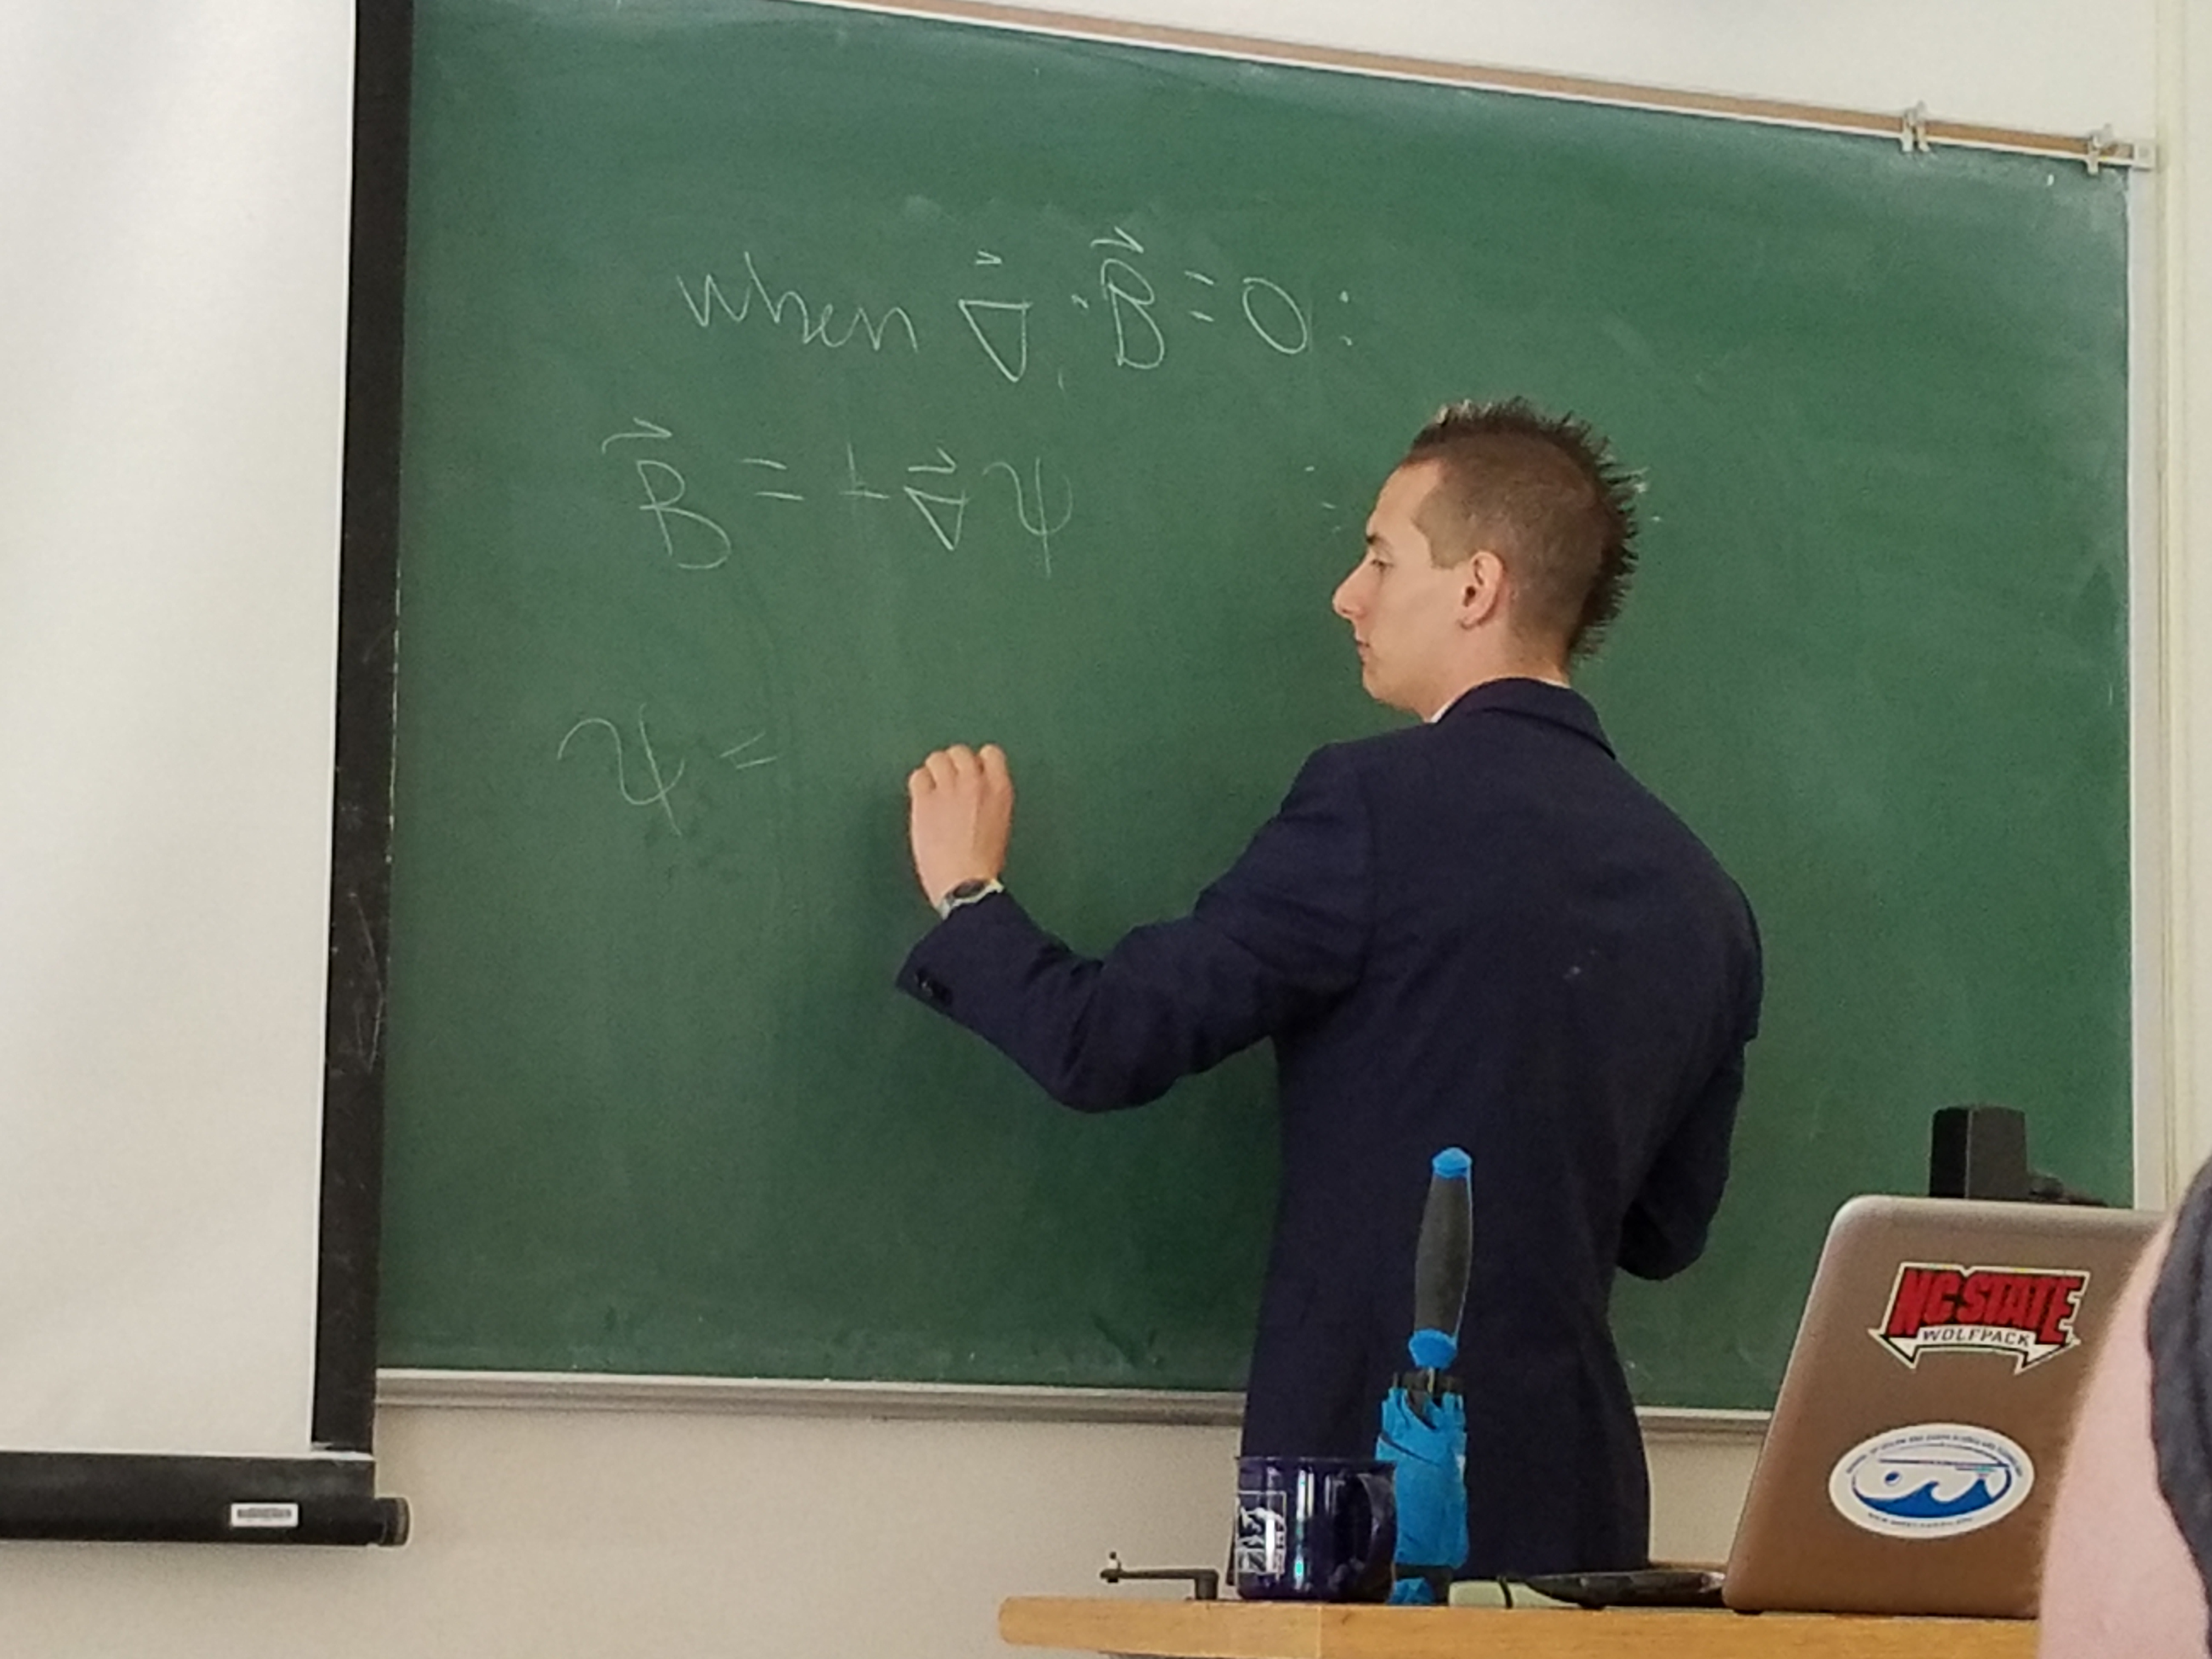 when ∇⃗ · B⃗ = 0 :
B⃗ = + ∇⃗ ψ
ψ =
NC STATE
WOLFPACK